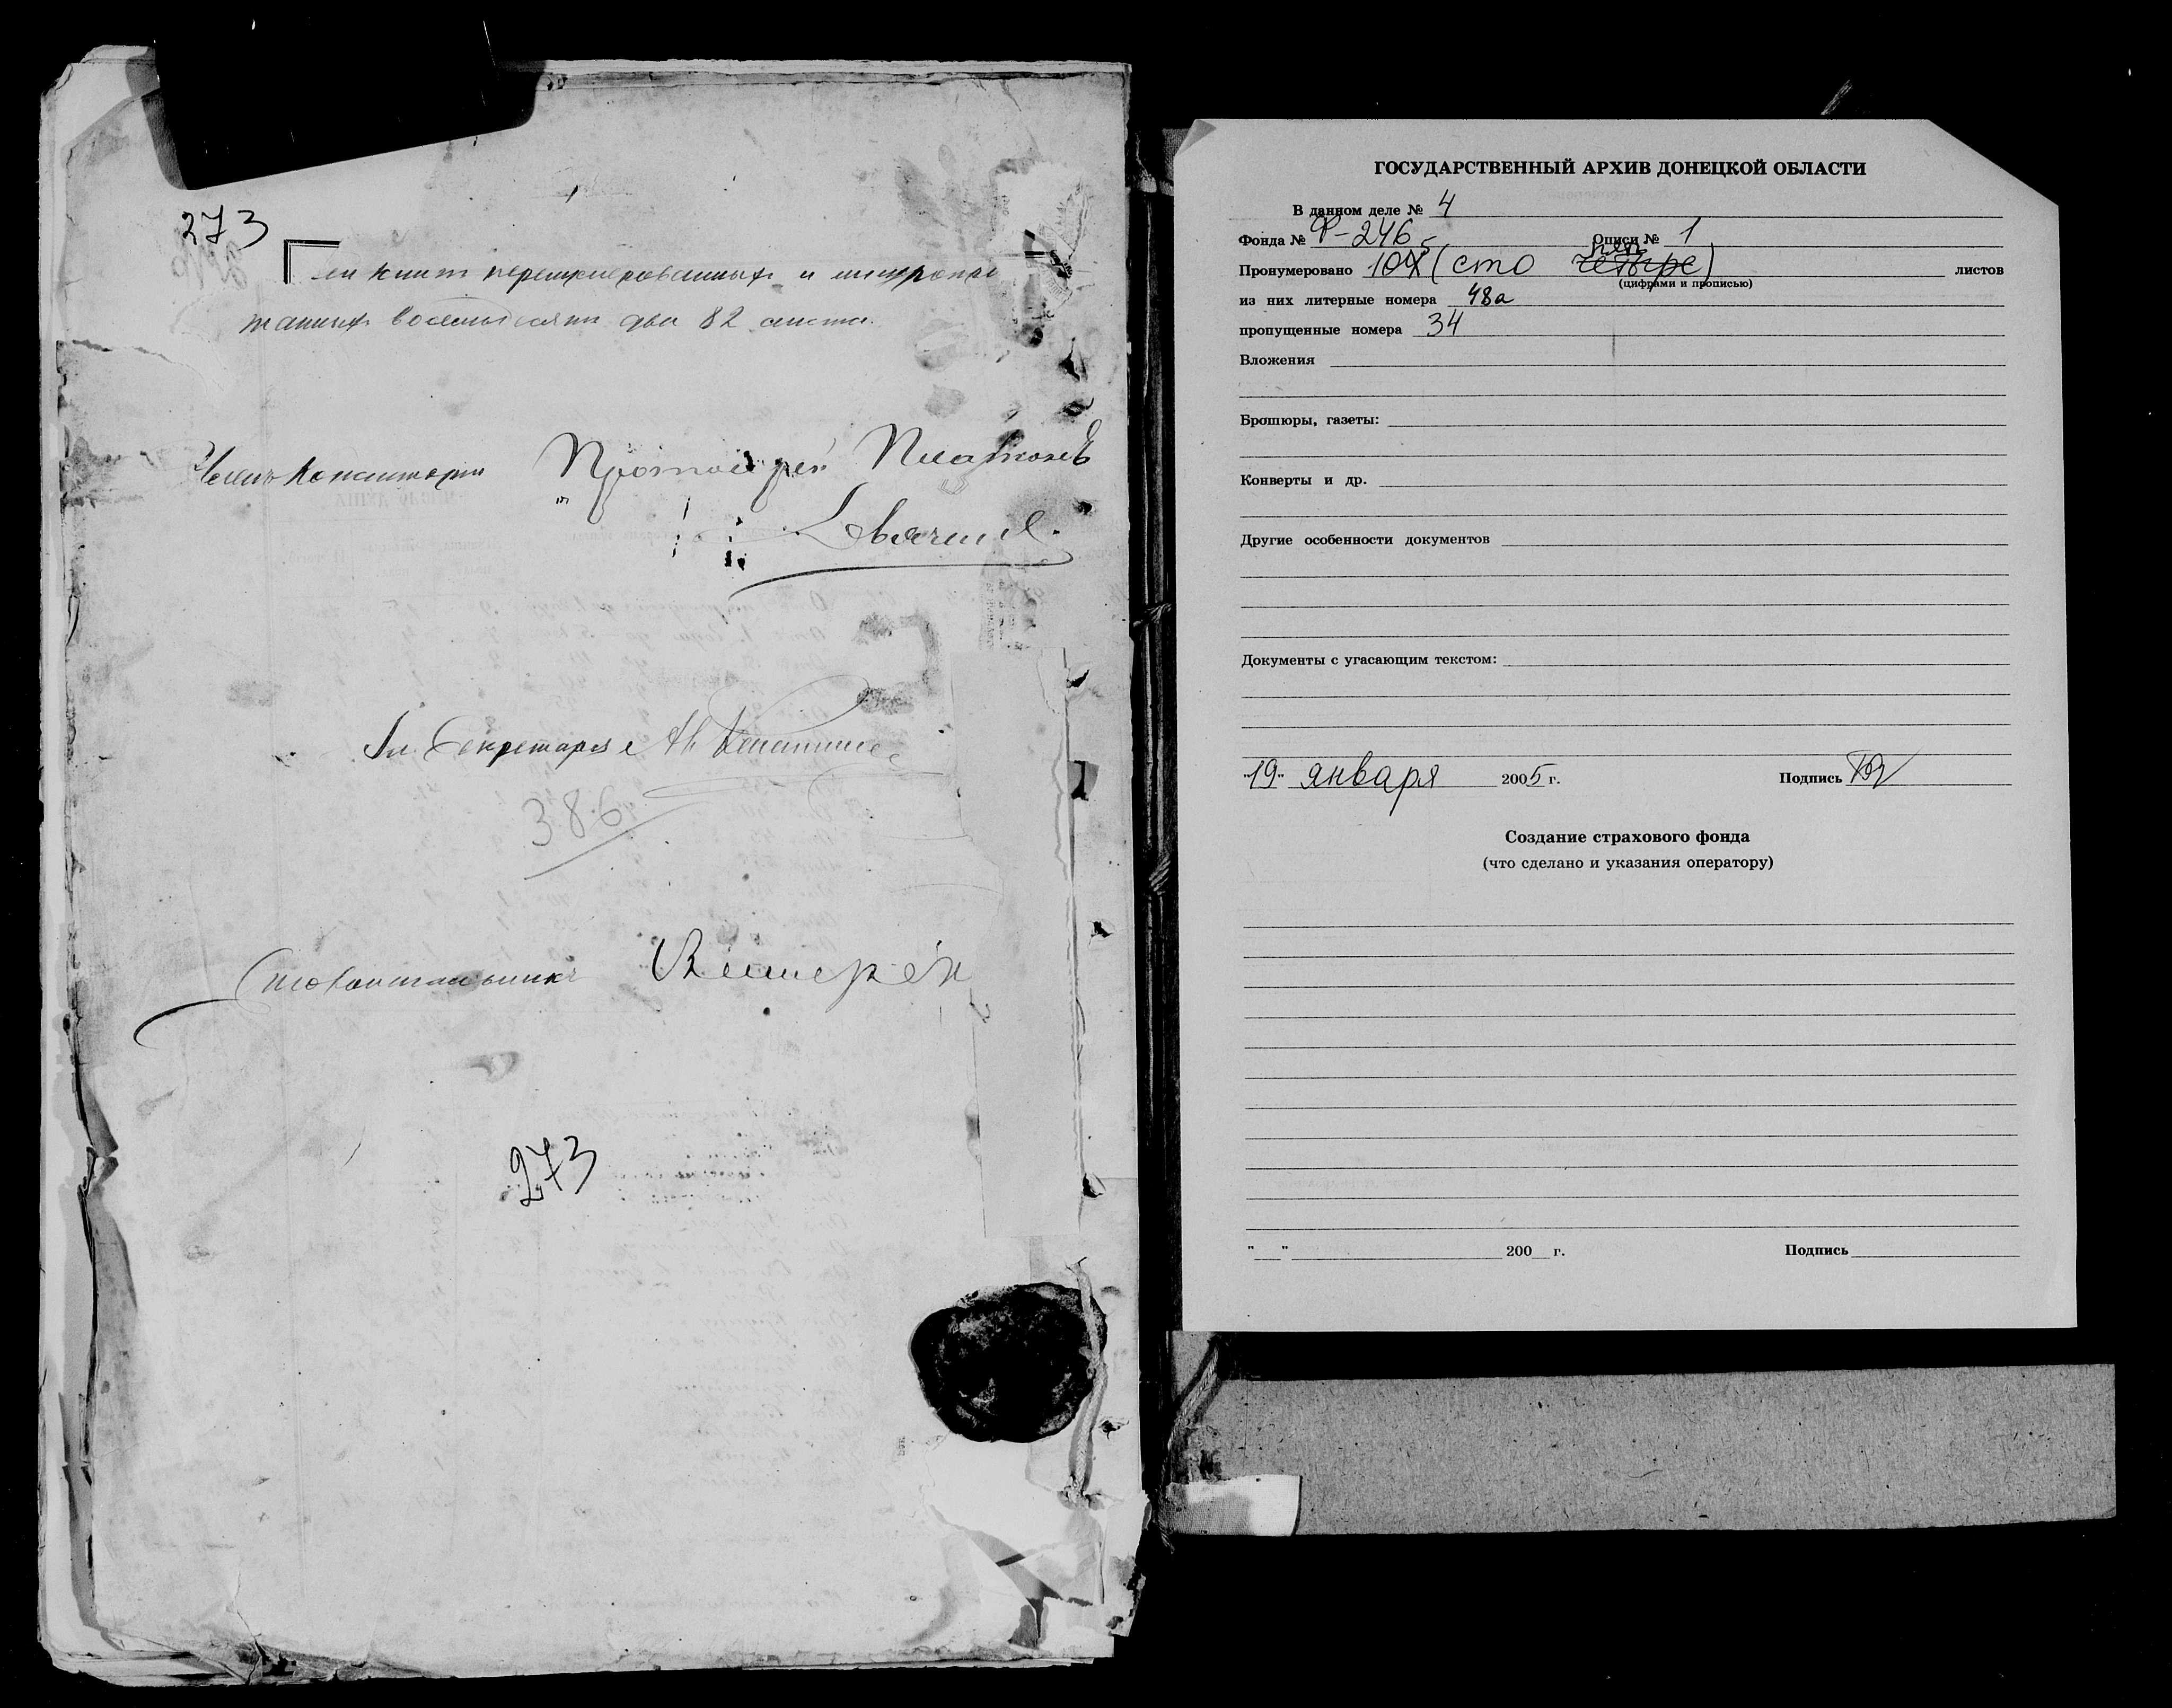 273
сей книги перенумерованныхъ и
восемьдесятъ два 82 листа.
Членъ Консисторіи Протоіерей Платонъ
Секретаря
386
Столоначальникъ
273
ГОСУДАРСТВЕННЫЙ АРХИВ ДОНЕЦКОЙ ОБЛАСТИ
В данном деле № 4
Фонда № Ф-246 Описи № 1
Пронумеровано 105 (сто пять четыре) листов
(цифрами и прописью)
из них литерные номера 48а
пропущенные номера 34
Вложения
Брошюры, газеты:
Конверты и др.
Другие особенности документов
Документы с угасающим текстом:
"19" января 2005 г. Подпись
Создание страхового фонда
(что сделано и указания оператору)
"__" 200 г. Подпись